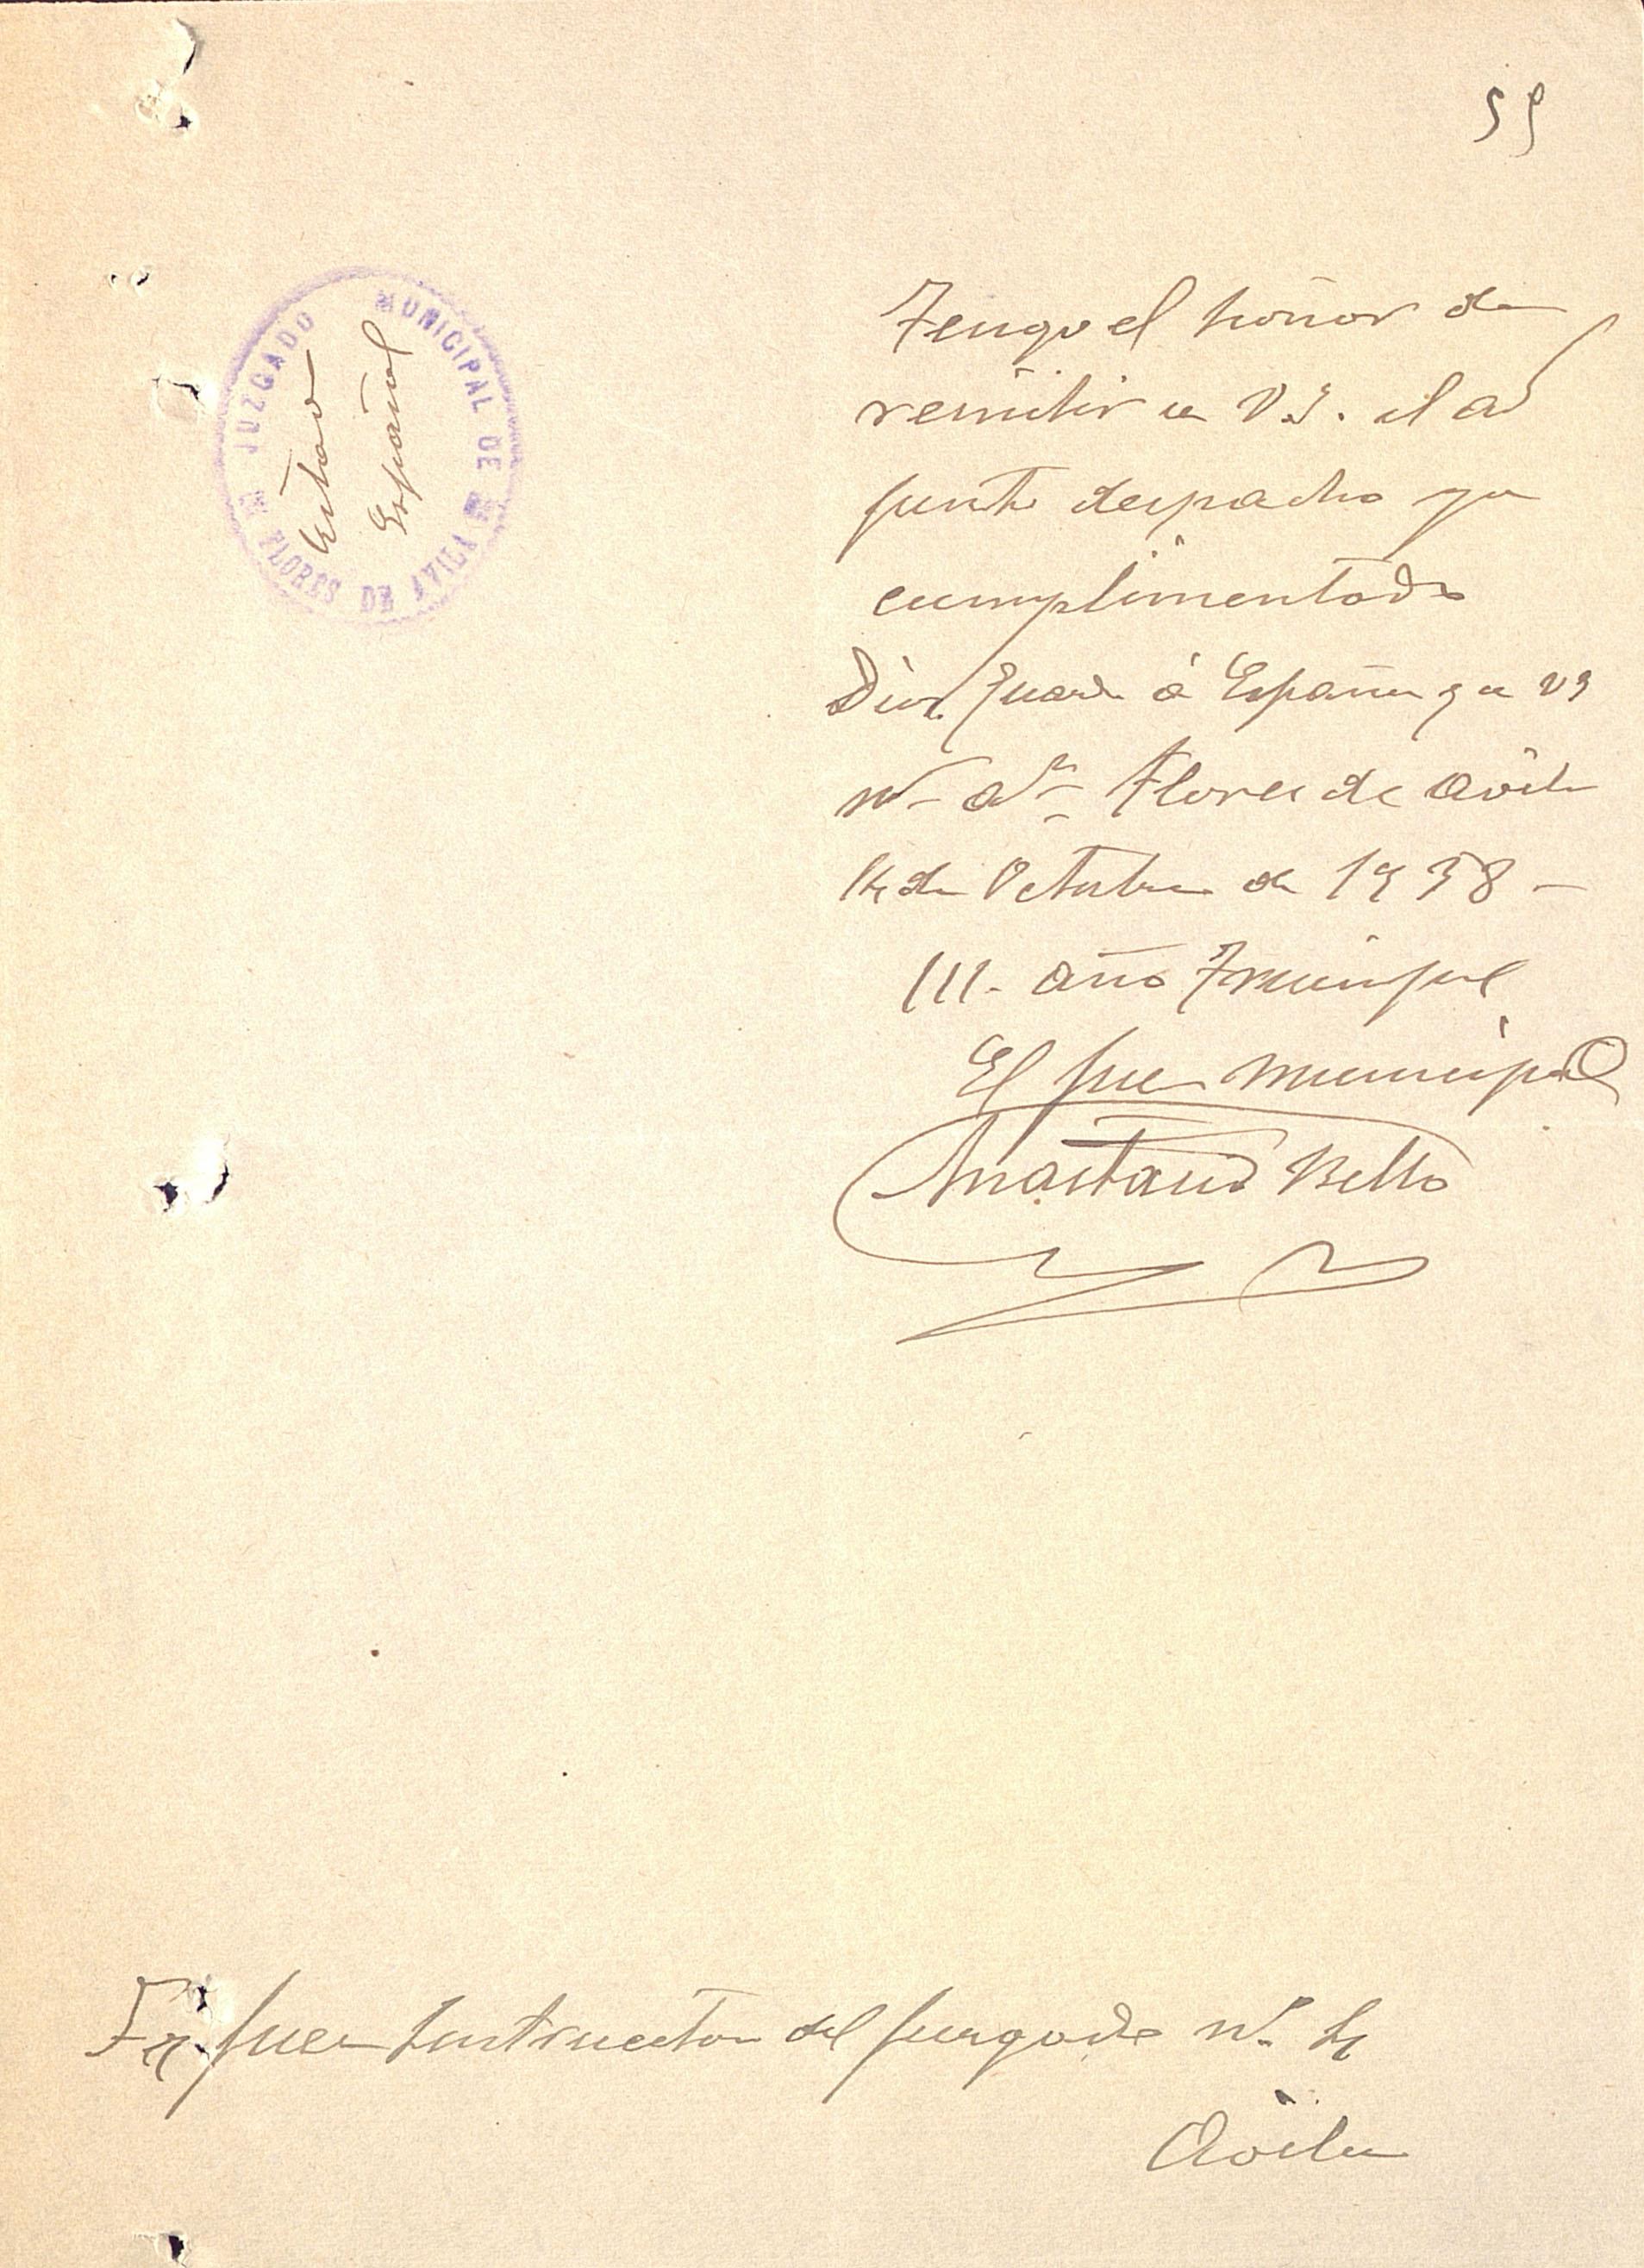 59
JUZGADO MUNICIPAL DE
FLORES DE AVILA
Estado
Español
Tengo el honor de
remitir a VS. el ad
junto despacho ya
cumplimentado
Dios guarde á España y a VS
m- as- Flores de Avila
14 de Octubre de 1938 -
III. año Triunfal
El Juez Municipal
Anastasio Bello
Sr. Juez Instructor del Juzgado nº 4
Avila